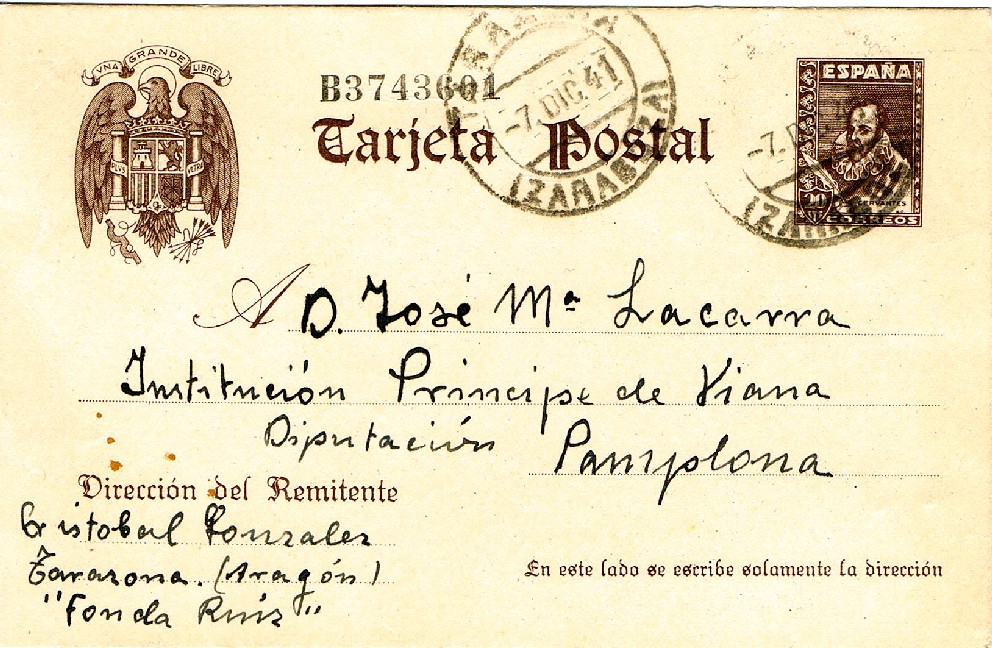 UNA GRANDE LIBRE
PLUS ULTRA
B3743601
Tarjeta Postal
-7.DIC.41
(ZARAGOZA)
ESPAÑA
-7.D
20
CERVANTES
CORREOS
A D. José Mª Lacarra
Institución Principe de Viana
Diputación Pamplona
Dirección del Remitente
Cristobal Gonzalez
Tarazona. (Aragón)
"Fonda Ruiz"
En este lado se escribe solamente la dirección